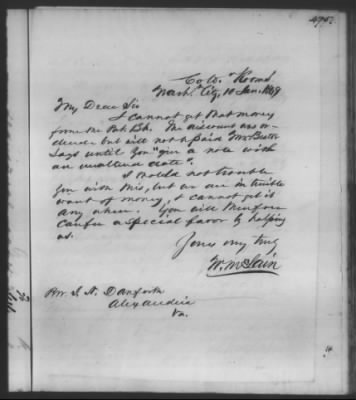 Col. Rooms
Wash. City, 10 Jan. 1849
My Dear Sir
I cannot get that money
from the Pat. Bk. The discount was or-
dered but will not be paid Mr
says until You "give a note with
an unaltered date".
I would not trouble
You with this, but we are in terrible
want of money, & cannot get it
any where. You will therefore
confer a special favor by helping
us.
Yours very truly
W. McLain
Rev. J. N. Danforth
Alexandria
Va.